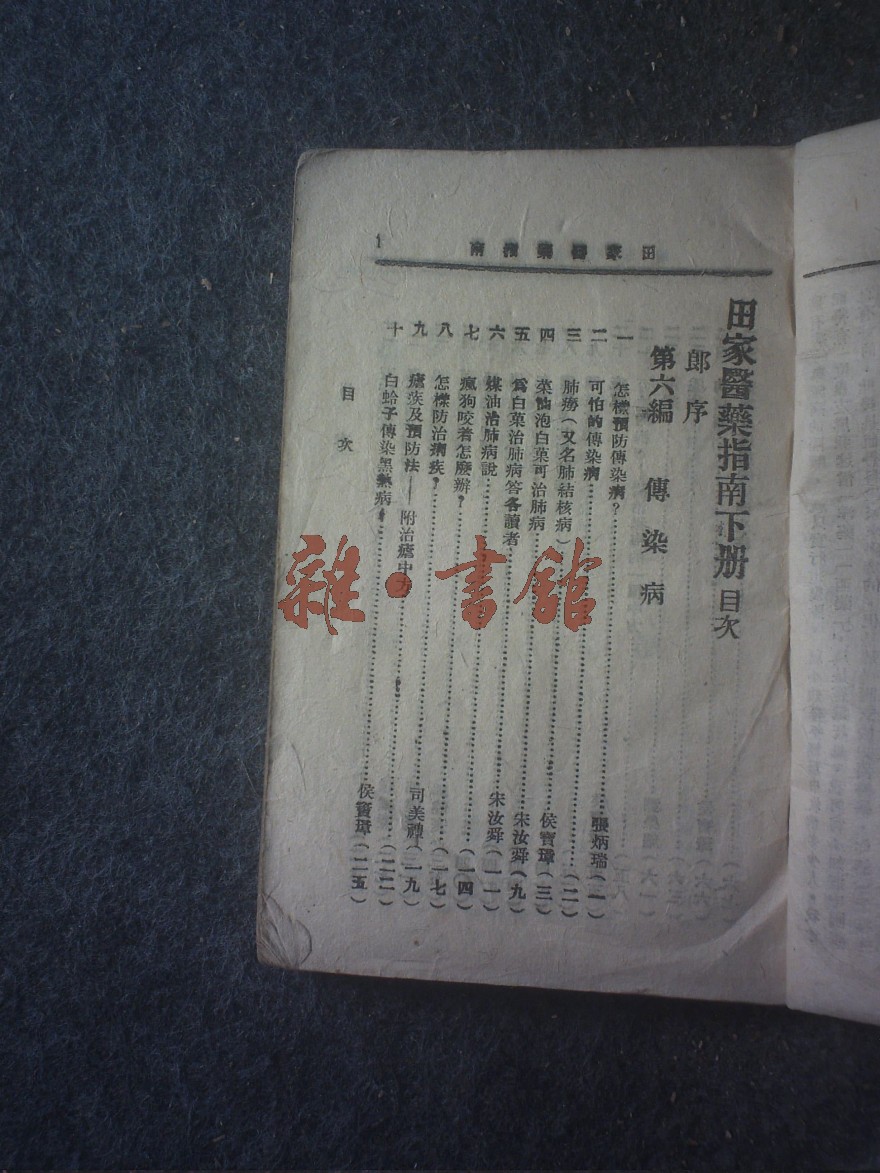 田家醫藥指南
1
田家醫藥指南下册 目次
郎序
第六編 傳染病
一 怎樣預防傳染病？……張炳瑞(一)
二 可怕的傳染病……(二)
三 肺癆(又名肺結核病)……侯寶璋(三)
四 菜油泡白菓可治肺病……宋汝舜(九)
五 爲白菓治肺病答各讀者……宋汝舜(一一)
六 煤油治肺病說……(一四)
七 瘋狗咬着怎麽辦？……(一七)
八 怎樣防治痢疾？……司美禮(一九)
九 瘧疾及預防法——附治瘧中方……(二二)
十 白蛉子傳染黑熱病……侯寶璋(二五)
目次
雜·書館